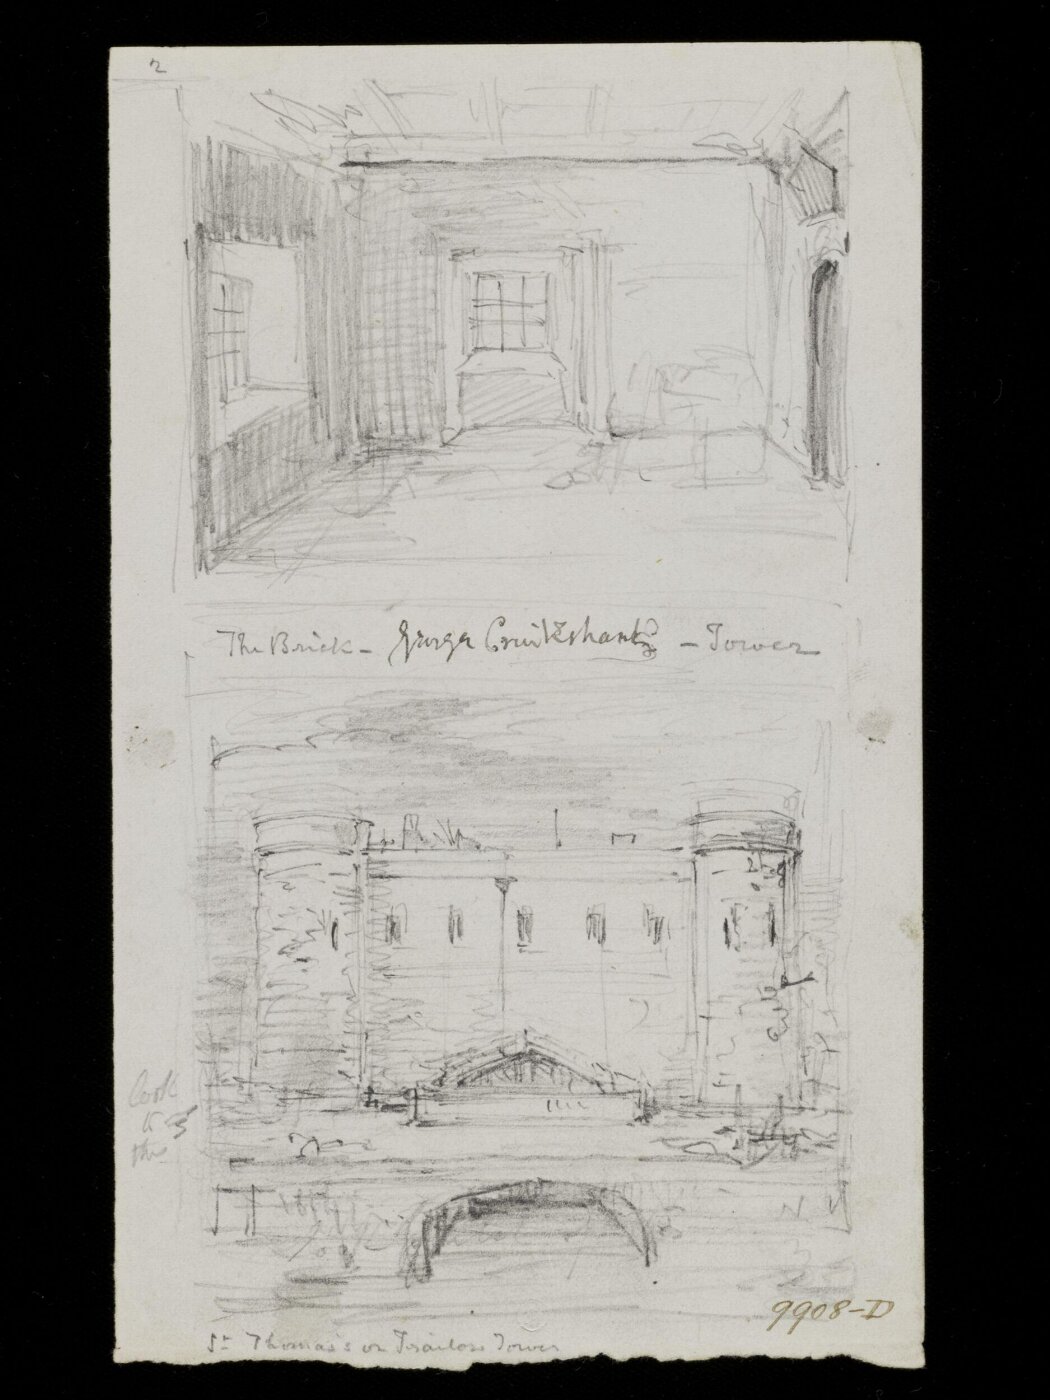 2
The Brick - George Cruikshank - Tower
Look
to
the
9908-D
St Thomas's or Traitors Tower